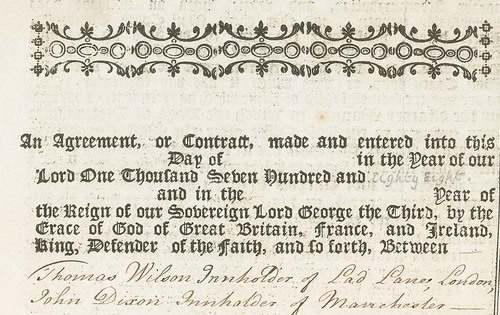 An Agreement, or Contract, made and entered into this
Day of in the Year of our
Lord One Thousand Seven Hundred and eighty eight
and in the Year of
the Reign of our Sovereign Lord George the Third, by the
Grace of God of Great Britain, France, and Ireland,
King, Defender of the Faith, and so forth, Between
Thomas Wilson Innholder of Lad Lane, London,
John Dixon Innholder of Manchester